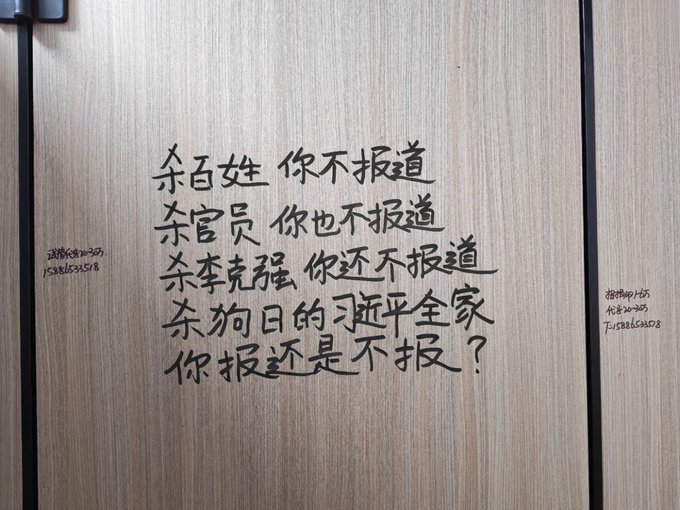 杀百姓 你不报道
杀官员 你也不报道
杀李克强 你还不报道
杀狗日的习近平全家
你报还是不报？
15886533518
代孕20-30万
T=15886533518